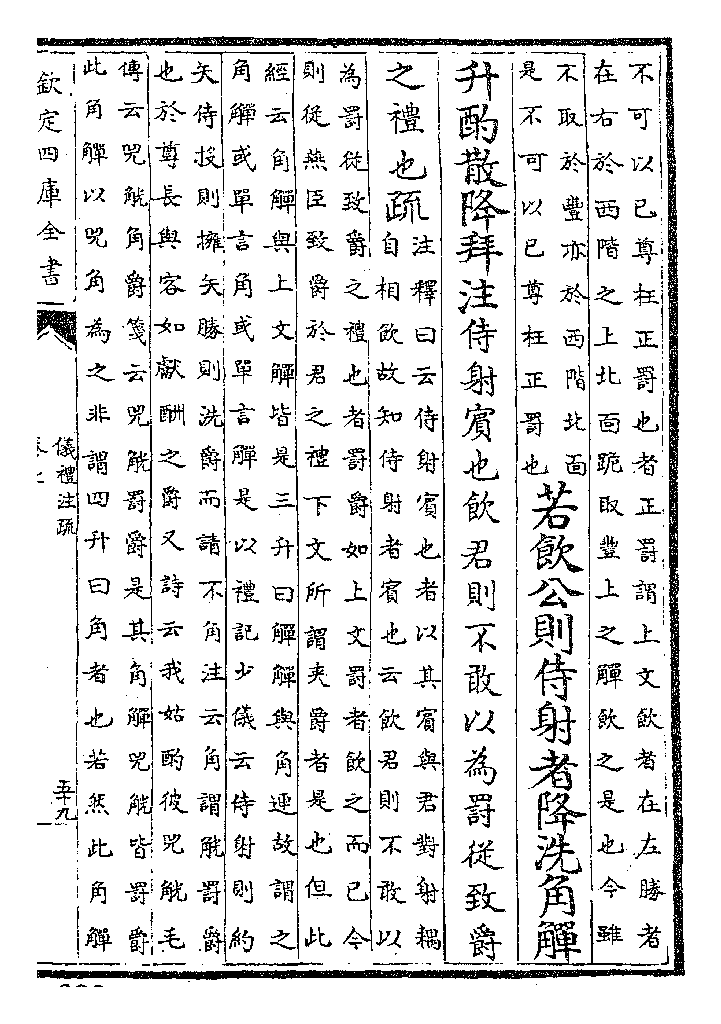 不可以已尊枉正罰也者正罰謂上文飲者在左勝者
在右於西階之上北面跪取豐上之觶飲之是也今雖
不取於豐亦於西階北面
是不可以已尊枉正罰也
若飲公則侍射者降洗角觶
升酌散降拜注侍射賓也飲君則不敢以為罰從致爵
之禮也疏
注釋曰云侍射賓也者以其賓與君對射耦
自相飲故知侍射者賓也云飲君則不敢以
為罰從致爵之禮也者罰爵如上文罰者飲之而已今
則從燕臣致爵於君之禮下文所謂夾爵者是也但此
經云角觶與上文觶皆是三升曰觶觶與角連故謂之
角觶或單言角或單言觶是以禮記少儀云侍射則約
矢侍投則擁矢勝則洗爵而請不角注云角謂觥罰爵
也於尊長與客如獻酬之爵又詩云我姑酌彼兕觥毛
傳云兕觥角爵箋云兕觥罰爵是其角觶兕觥皆罰爵
此角觶以兕角為之非謂四升曰角者也若然此角觶
欽定四庫全書
儀禮注疏
五十九